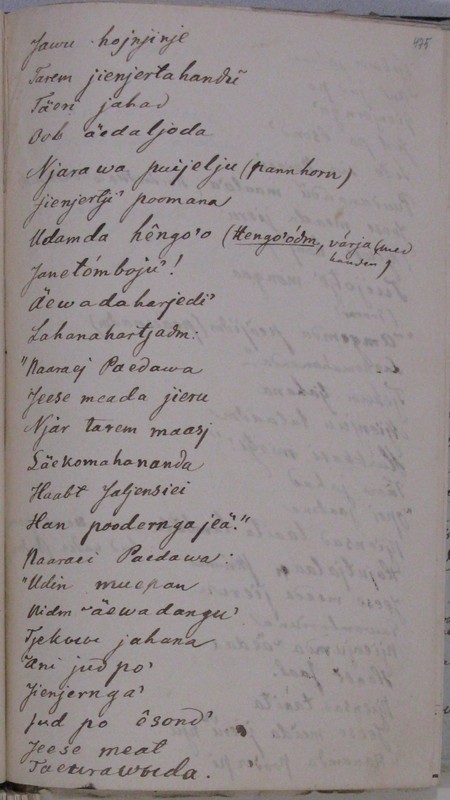 475
Jawu hojnjinje
Tarem jienjertahandū
Täeri jahad
Oob äedaljoda
Njarawa puijelju (pannhorn)
Jienjertji' poomana
Udamda hêngo'o (Hengo'óḋm, värja (med handen)
Janetómboju'!
Äewadaharjedi'
Lahanahartjadm:
"Naaraej Paedawa
Jeese meada jieru
Njar tarem maasj
Säekomahananda
Haabt Jaljensiei
Han poodernga jeä."
Naaraei Paedawa:
"Udin muepan
Nidm äewadangu'
Tjekuwi jahana
Uni jud po'
Jienjernga'
Jud po êsond'
Jeese meat
Taeurawuida.